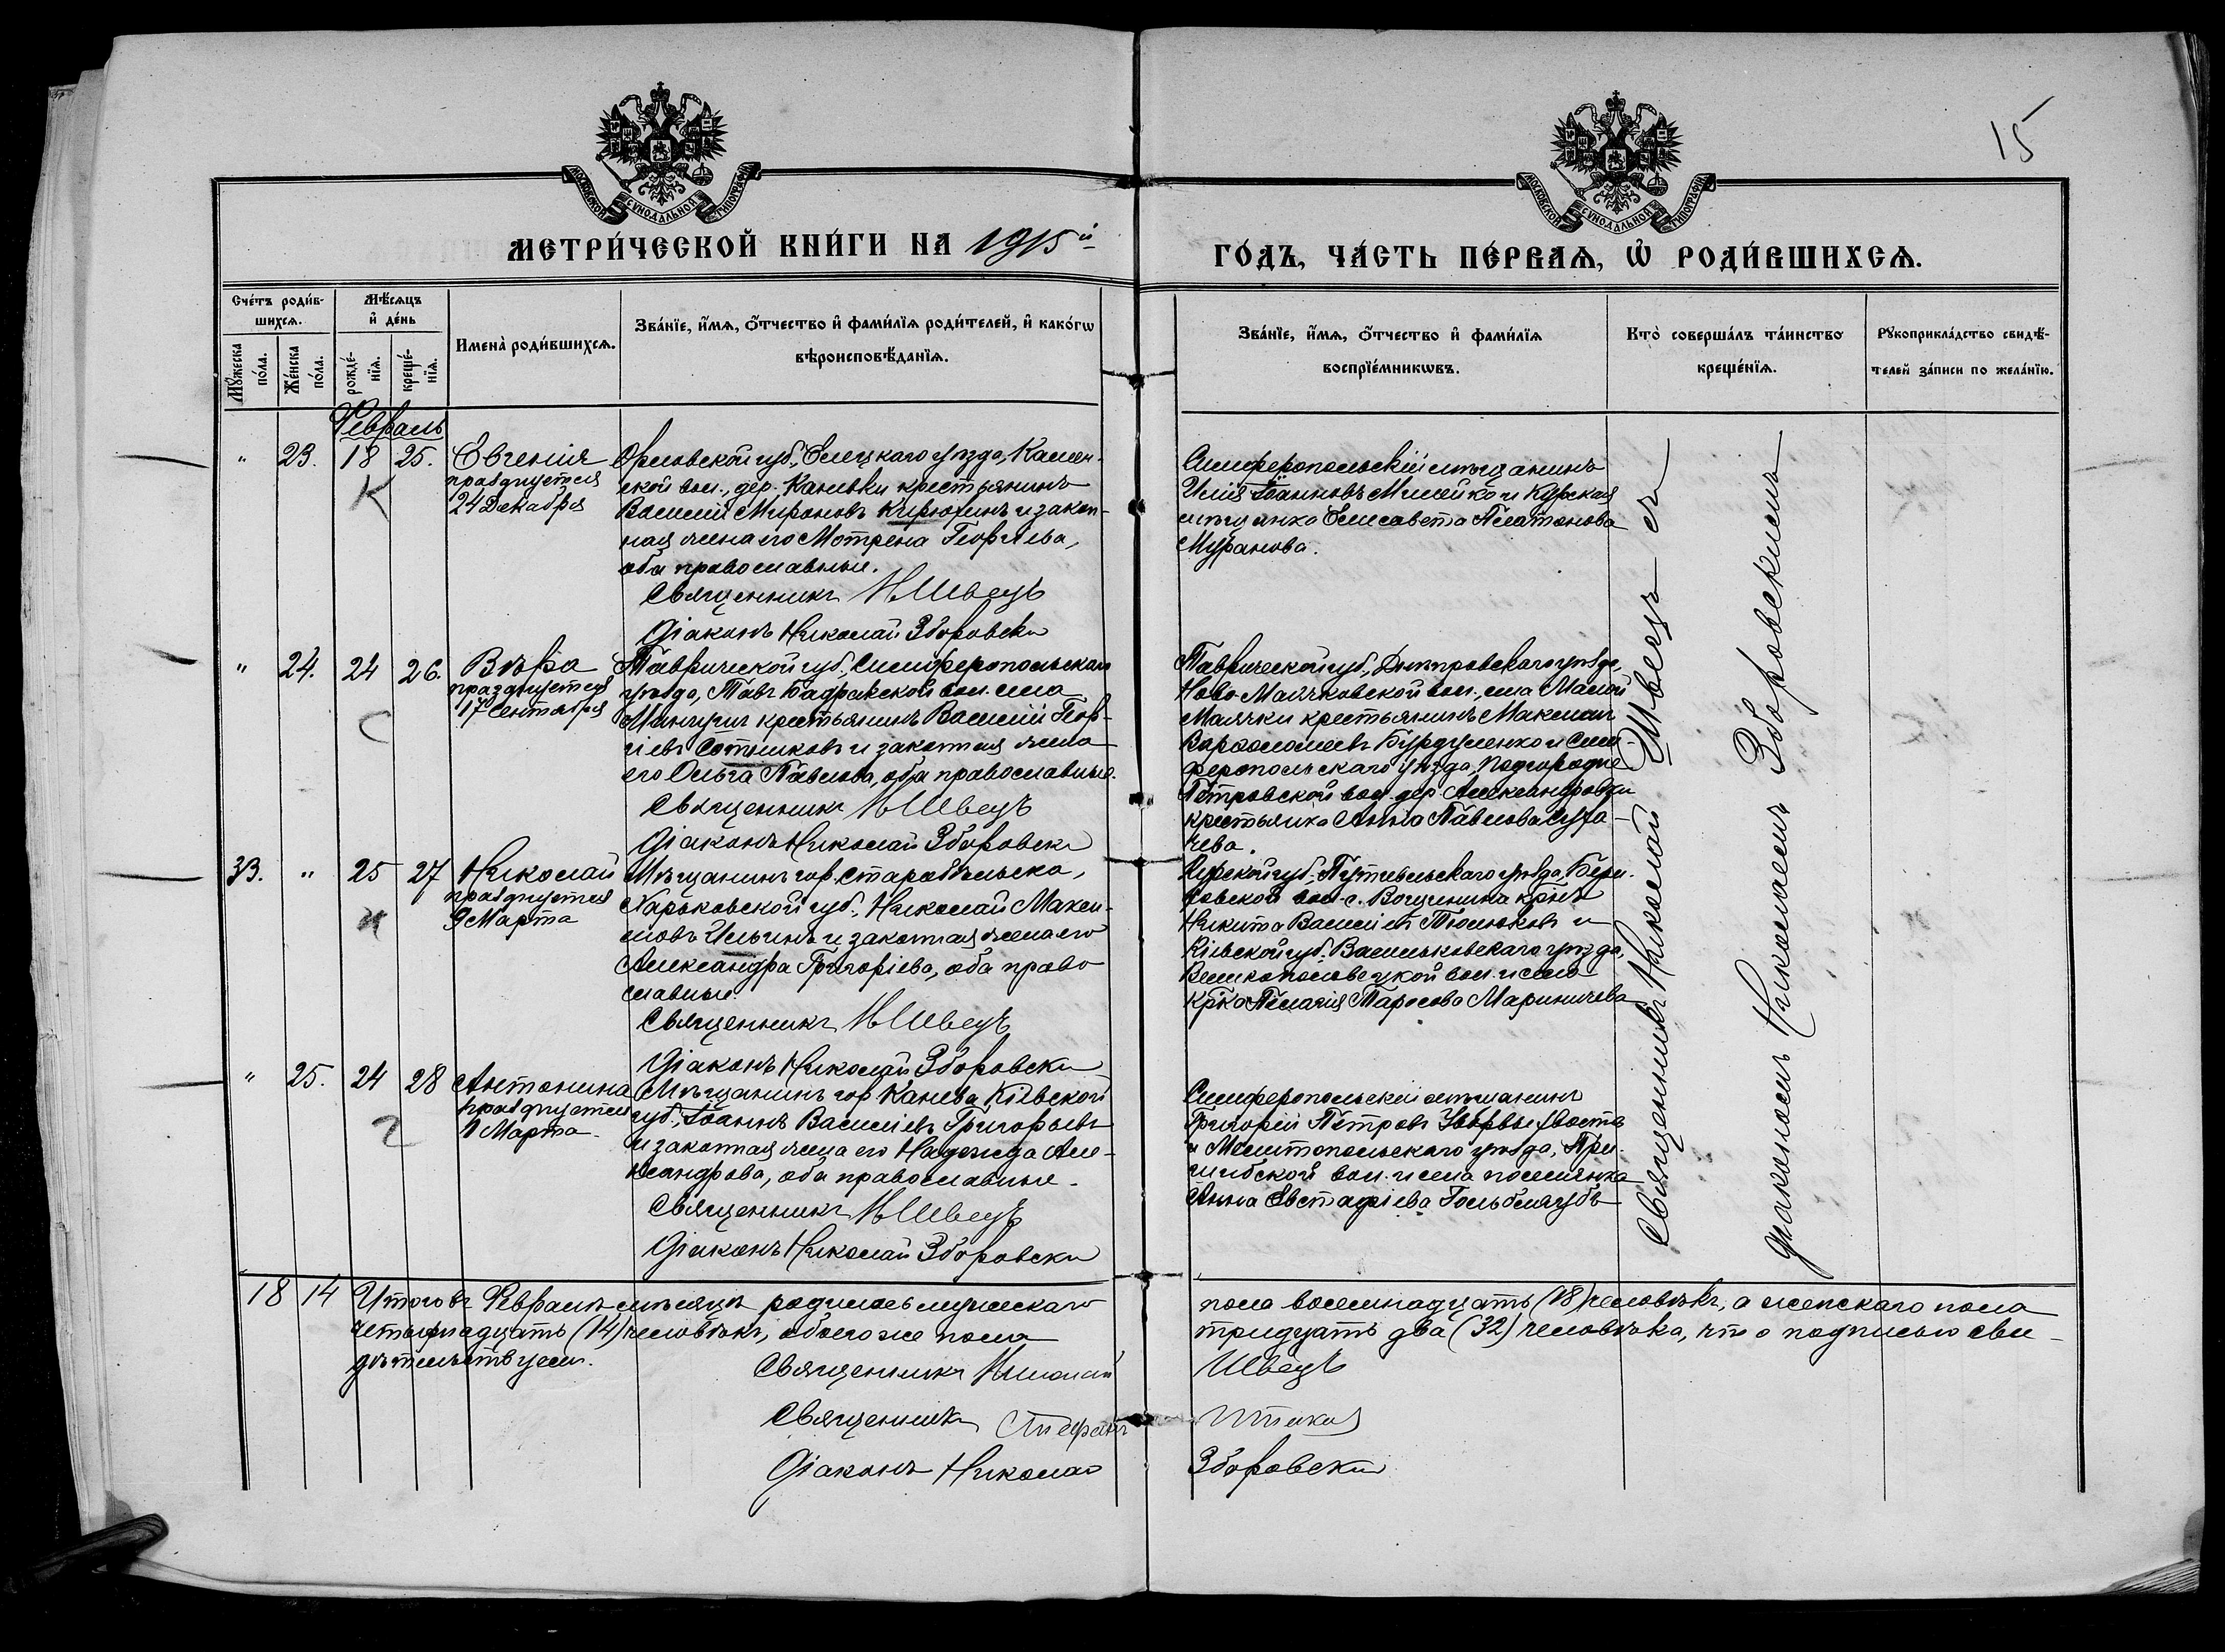 15
МОСКОВСКОЙ СѴНОДАЛЬНОЙ ТИПОГРАФІИ
МОСКОВСКОЙ СѴНОДАЛЬНОЙ ТИПОГРАФІИ
МЕТРИ́ЧЕСКОЙ КНИ́ГИ НА 1915й
ГО́ДЪ, ЧА́СТЬ ПЕ́РВАѦ, Ѡ҆ РОДИ́ВШИХСѦ.
Сче́тъ роди́в-
шихсѧ.
Мꙋ́жеска по́ла.
Же́нска по́ла.
Мѣ́сѧцъ
и҆ де́нь
рожде́-нїѧ.
креще́-нїѧ.
Имена̀ роди́вшихсѧ.
Зва́нїе, и҆́мѧ, ѻ҆́тчество и҆ фами́лїѧ роди́телей, и҆ како́гѡ
вѣроисповѣ́данїѧ.
Зва́нїе, и҆́мѧ, ѻ҆́тчество и҆ фами́лїѧ
воспрїе́мникѡвъ.
Кто̀ соверша́лъ та́инство
креще́нїѧ.
Рꙋкоприкла́дство свидѣ́-
телей за́писи по жела́нїю.
Февраль
" 23. 18 25. Евгенія
празднуется
24 Декабря
К
Орловской губ., Елецкаго уѣзда, Камен-
ской вол., дер. Каневки крестьянинъ
Василій Мироновъ Кирюхинъ и закон-
ная жена его Мотрена Георгіева,
оба православные.
Священникъ Н Швецъ
Діаконъ Николай Зборовски
Симферопольскій мѣщанинъ
Илія Іоанновъ Милейко и Курская
мѣщанка Елисавета Платонова
Муранова.
" 24. 24 26. Вѣра
празднуется
17 Сентября
С
Таврической губ., Симферопольскаго
уѣзда, Тавъ Бадракской вол. села
Мангушъ крестьянинъ Василій Геор-
гіевъ Сотниковъ и законная жена
его Ольга Павлова, оба православные.
Священникъ Н Швецъ
Діаконъ Николай Зборовски
Таврической губ., Днѣпровскаго уѣзда,
Ново-Маячковской вол., села Малой
Маячки крестьянинъ Максимъ
Варѳоломеевъ Бурдуменко и Сим-
феропольскаго уѣзда, Подгородне
Петровской вол. дер. Александровки
крестьянка Анна Павлова Суха-
чева.
33. " 25 27 Николай
празднуется
9 Марта
И
Мѣщанинъ гор. Старобѣльска,
Харьковской губ., Николай Макси-
мовъ Ильинъ и законная жена его
Александра Григоріева, оба право
славные.
Священникъ Н Швецъ
Діаконъ Николай Зборовски
Курской губ., Путивльскаго уѣзда,
вол. с. Вощинина кр-нъ
Никита Василіевъ Тюлюковъ и
Кіевской губ. Васильковскаго уѣзда,
Великополовецкой вол. и села
кр-ка Пелагія Тарасова Мариничева
" 25. 24 28 Антонина
празднуется
1 Марта.
Г
Мѣщанинъ гор. Канева Кіевской
губ., Іоаннъ Василіевъ Григорьевъ
и законная жена его Надежда Але-
ксандрова, оба православные.
Священникъ Н Швецъ
Діаконъ Николай Зборовски
Симферопольскій мѣщанинъ
Григорій Петровъ
и Мелитопольскаго уѣзда, При-
шибской вол. и села поселянка
Анна Евстафіева
Священникъ Николай Швецъ съ
діакономъ Николаемъ Зборовскимъ
18 14 Итого въ Февралѣ мѣсяцѣ родилось мужескаго
пола восемнадцать (18) человѣкъ, а женскаго пола
четырнадцать (14) человѣкъ, обоего же пола
тридцать два (32) человѣка, что подписью сви-
дѣтельствуемъ.
Священникъ Николай Швецъ
Священникъ
Діаконъ Николай Зборовски